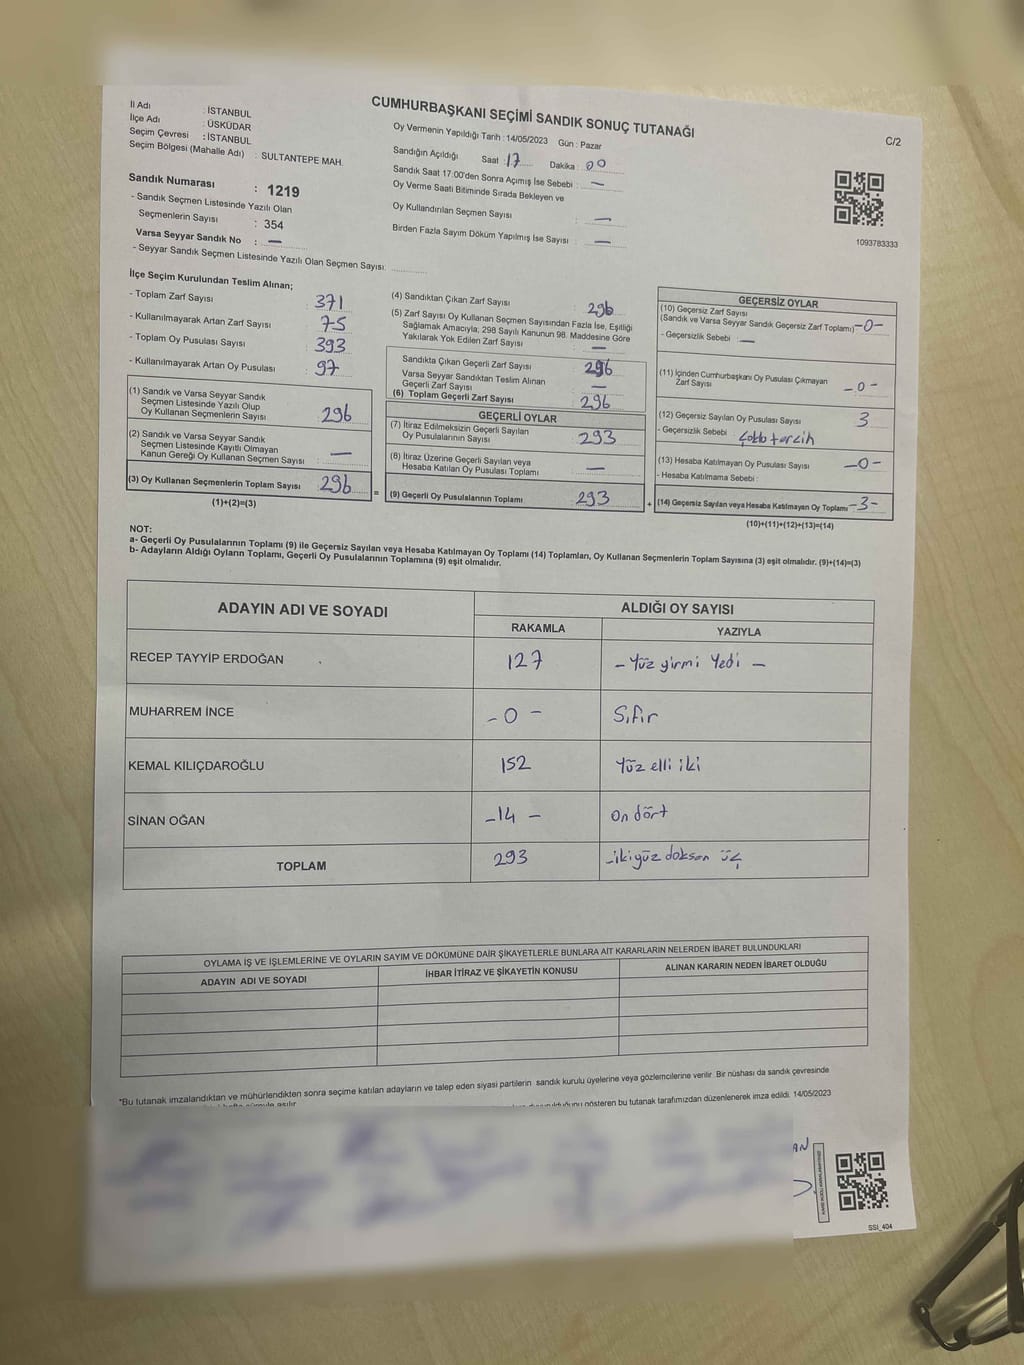 CUMHURBAŞKANI SEÇİMİ SANDIK SONUÇ TUTANAĞI
C/2
İl Adı : İSTANBUL
İlçe Adı : ÜSKÜDAR
Seçim Çevresi : İSTANBUL
Seçim Bölgesi (Mahalle Adı) : SULTANTEPE MAH.
Sandık Numarası : 1219
- Sandık Seçmen Listesinde Yazılı Olan
Seçmenlerin Sayısı : 354
Varsa Seyyar Sandık No : —
- Seyyar Sandık Seçmen Listesinde Yazılı Olan Seçmen Sayısı:
Oy Vermenin Yapıldığı Tarih : 14/05/2023 Gün : Pazar
Sandığın Açıldığı Saat : 17 Dakika : 00
Sandık Saat 17:00'den Sonra Açımış İse Sebebi : —
Oy Verme Saati Bitiminde Sırada Bekleyen ve
Oy Kullandırılan Seçmen Sayısı : —
Birden Fazla Sayım Döküm Yapılmış İse Sayısı : —
1093783333
İlçe Seçim Kurulundan Teslim Alınan;
- Toplam Zarf Sayısı : 371
- Kullanılmayarak Artan Zarf Sayısı : 75
- Toplam Oy Pusulası Sayısı : 393
- Kullanılmayarak Artan Oy Pusulası : 97
(1) Sandık ve Varsa Seyyar Sandık
Seçmen Listesinde Yazılı Olup
Oy Kullanan Seçmenlerin Sayısı : 296
(2) Sandık ve Varsa Seyyar Sandık
Seçmen Listesinde Kayıtlı Olmayan
Kanun Gereği Oy Kullanan Seçmen Sayısı : —
(3) Oy Kullanan Seçmenlerin Toplam Sayısı : 296
(1)+(2)=(3)
(4) Sandıktan Çıkan Zarf Sayısı : 296
(5) Zarf Sayısı Oy Kullanan Seçmen Sayısından Fazla İse, Eşitliği
Sağlamak Amacıyla; 298 Sayılı Kanunun 98. Maddesine Göre
Yakılarak Yok Edilen Zarf Sayısı : —
Sandıkta Çıkan Geçerli Zarf Sayısı : 296
Varsa Seyyar Sandıktan Teslim Alınan
Geçerli Zarf Sayısı : —
(6) Toplam Geçerli Zarf Sayısı : 296
GEÇERLİ OYLAR
(7) İtiraz Edilmeksizin Geçerli Sayılan
Oy Pusulalarının Sayısı : 293
(8) İtiraz Üzerine Geçerli Sayılan veya
Hesaba Katılan Oy Pusulası Toplamı : —
=
(9) Geçerli Oy Pusulalarının Toplamı : 293
+
GEÇERSİZ OYLAR
(10) Geçersiz Zarf Sayısı
(Sandık ve Varsa Seyyar Sandık Geçersiz Zarf Toplamı) -0-
- Geçersizlik Sebebi : —
(11) İçinden Cumhurbaşkanı Oy Pusulası Çıkmayan
Zarf Sayısı -0-
(12) Geçersiz Sayılan Oy Pusulası Sayısı 3
- Geçersizlik Sebebi : tercih
(13) Hesaba Katılmayan Oy Pusulası Sayısı -0-
- Hesaba Katılmama Sebebi :
(14) Geçersiz Sayılan veya Hesaba Katılmayan Oy Toplamı -3-
(10)+(11)+(12)+(13)=(14)
NOT:
a- Geçerli Oy Pusulalarının Toplamı (9) ile Geçersiz Sayılan veya Hesaba Katılmayan Oy Toplamı (14) Toplamları, Oy Kullanan Seçmenlerin Toplam Sayısına (3) eşit olmalıdır. (9)+(14)=(3)
b- Adayların Aldığı Oyların Toplamı, Geçerli Oy Pusulalarının Toplamına (9) eşit olmalıdır.
ADAYIN ADI VE SOYADI
ALDIĞI OY SAYISI
RAKAMLA YAZIYLA
RECEP TAYYİP ERDOĞAN 127 - Yüz yirmi Yedi -
MUHARREM İNCE - 0 - Sıfır
KEMAL KILIÇDAROĞLU 152 Yüz elli iki
SİNAN OĞAN -14 - On dört
TOPLAM 293 -iki yüz doksan üç
OYLAMA İŞ VE İŞLEMLERİNE VE OYLARIN SAYIM VE DÖKÜMÜNE DAİR ŞİKAYETLERLE BUNLARA AİT KARARLARIN NELERDEN İBARET BULUNDUKLARI
ADAYIN ADI VE SOYADI İHBAR İTİRAZ VE ŞİKAYETİN KONUSU ALINAN KARARIN NEDEN İBARET OLDUĞU
*Bu tutanak imzalandıktan ve mühürlendikten sonra seçime katılan adayların ve talep eden siyasi partilerin sandık kurulu üyelerine veya gözlemcilerine verilir. Bir nüshası da sandık çevresinde
gösteren bu tutanak tarafımızdan düzenlenerek imza edildi. 14/05/2023
SSİ_404